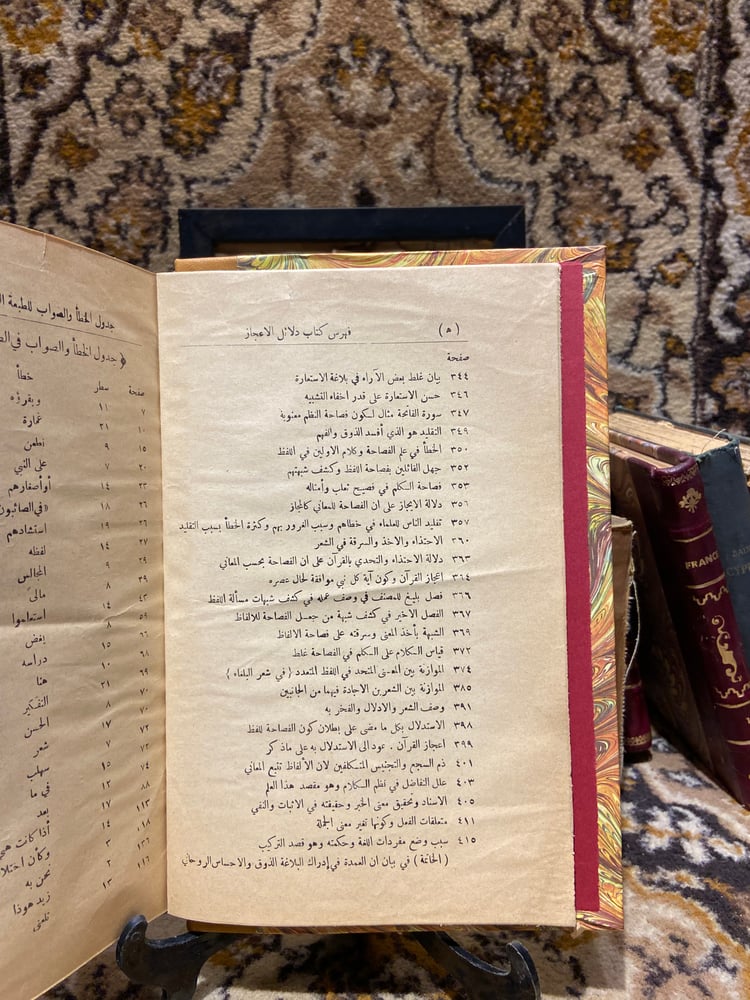 (ه) فهرس كتاب دلائل الاعجاز
صفحة
٣٤٤ بيان غلط بعض الآراء في بلاغة الاستعارة
٣٤٦ حسن الاستعارة على قدر اخفاء التشبيه
٣٤٧ سورة الفاتحة مثال لكون فصاحة النظم معنوية
٣٤٩ التقليد هو الذي أفسد الذوق والفهم
٣٥٠ الخطأ في علم الفصاحة وكلام الاولين في اللفظ
٣٥٢ جهل القائلين بفصاحة اللفظ وكشف شبهتهم
٣٥٣ فصاحة الكلم في فصيح ثعلب وأمثاله
٣٥٦ دلالة الايجاز على ان الفصاحة للمعاني كالمجاز
٣٥٧ تقليد الناس للعلماء في خطاهم وسبب الغرور بهم وكثرة الخطأ بسبب التقليد
٣٦٠ الاحتذاء والاخذ والسرقة في الشعر
٣٦٣ دلالة الاحتذاء والتحدي بالقرآن على ان الفصاحة بحسب المعاني
٣٦٤ اعجاز القرآن وكون آية كل نبي موافقة لحال عصره
٣٦٦ فصل بليغ للمصنف في وصف عمله في كشف شبهات مسألة اللفظ
٣٦٧ الفصل الاخير في كشف شبهة من جعل الفصاحة للالفاظ
٣٦٩ الشبهة بأخذ المعنى وسرقته على فصاحة الالفاظ
٣٧٢ قياس الكلام على الكلم في الفصاحة غلط
٣٧٤ الموازنة بين المعنى المتحد في اللفظ المتعدد (في شعر البلغاء)
٣٨٥ الموازنة بين الشعرين الاجادة فيهما من الجانبين
٣٩١ وصف الشعر والادلال والفخر به
٣٩٨ الاستدلال بكل ما مضى على بطلان كون الفصاحة للفظ
٣٩٩ أعجاز القرآن . عود الى الاستدلال به على ماذكر
٤٠١ ذم السجع والتجنيس المتكلفين لان الألفاظ تتبع المعاني
٤٠٣ علل التفاضل في نظم الكلام وهو مقصد هذا العلم
٤٠٥ الاسناد وتحقيق معنى الخبر وحقيقته في الاثبات والنفي
٤١١ متعلقات الفعل وكونها تغير معنى الجملة
٤١٥ سبب وضع مفردات اللغة وحكمته وهو قصد التركيب
(الخاتمة) في بيان ان العمدة في إدراك البلاغة الذوق والاحساس الروحاني
جدول الخطأ والصواب للطبعة
جدول الخطأ والصواب في
صفحة سطر خطأ
٧ ١١ وبقرؤه
١٠ ٢١ غمارة
١٥ ٩ نطعن
٢٠ ٧ على النبي
٢٣ ١٤ أوأصغارهم
٢٦ ١٨ «في الصائبون
٢٦ ١٩ استشادهم
٢٧ ١٤ لفظه
٢٩ ٩ المجالس
٣٩ ٨ مالى
٤٣ ١٤
٥٩ ٨
٦٦ ١٥ بغض
٦٨ ١٠ دراسه
٦٩ ٢١ هنا
٧٠ ٨ التفكير
٧٢ ١٧ الحسن
٧٣ ٧ شعر
٧٤ ١٥ سهلب
٨٨ ١٢ في ما
١١٣ ١٧ بعد
١١٨ ١٤ أذا كانت
١٣٦ ٣
١١٦ ٢ نحن به
١٣ زيد هوذا
FRANCE